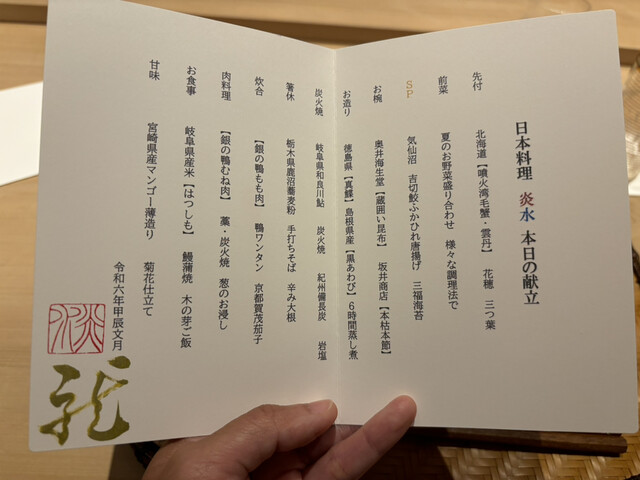 日本料理 炎水 本日の献立
先付 北海道【噴火湾毛蟹・雲丹】 花穂 三つ葉
前菜 夏のお野菜盛り合わせ 様々な調理法で
SP 気仙沼 吉切鮫ふかひれ唐揚げ 三福海苔
お椀 奥井海生堂【蔵囲い昆布】 坂井商店【本枯本節】
お造り 徳島県【真鰹】島根県産【黒あわび】6時間蒸し煮
炭火焼 岐阜県和良川鮎 炭火焼 紀州備長炭 岩塩
箸休 栃木県鹿沼蕎麦粉 手打ちそば 辛み大根
炊合 【銀の鴨もも肉】 鴨ワンタン 京都賀茂茄子
肉料理 【銀の鴨むね肉】 藁・炭火焼 葱のお浸し
お食事 岐阜県産米【はつしも】 鰻蒲焼 木の芽ご飯
甘味 宮崎県産マンゴー薄造り 菊花仕立て
令和六年甲辰文月
炎水
龍